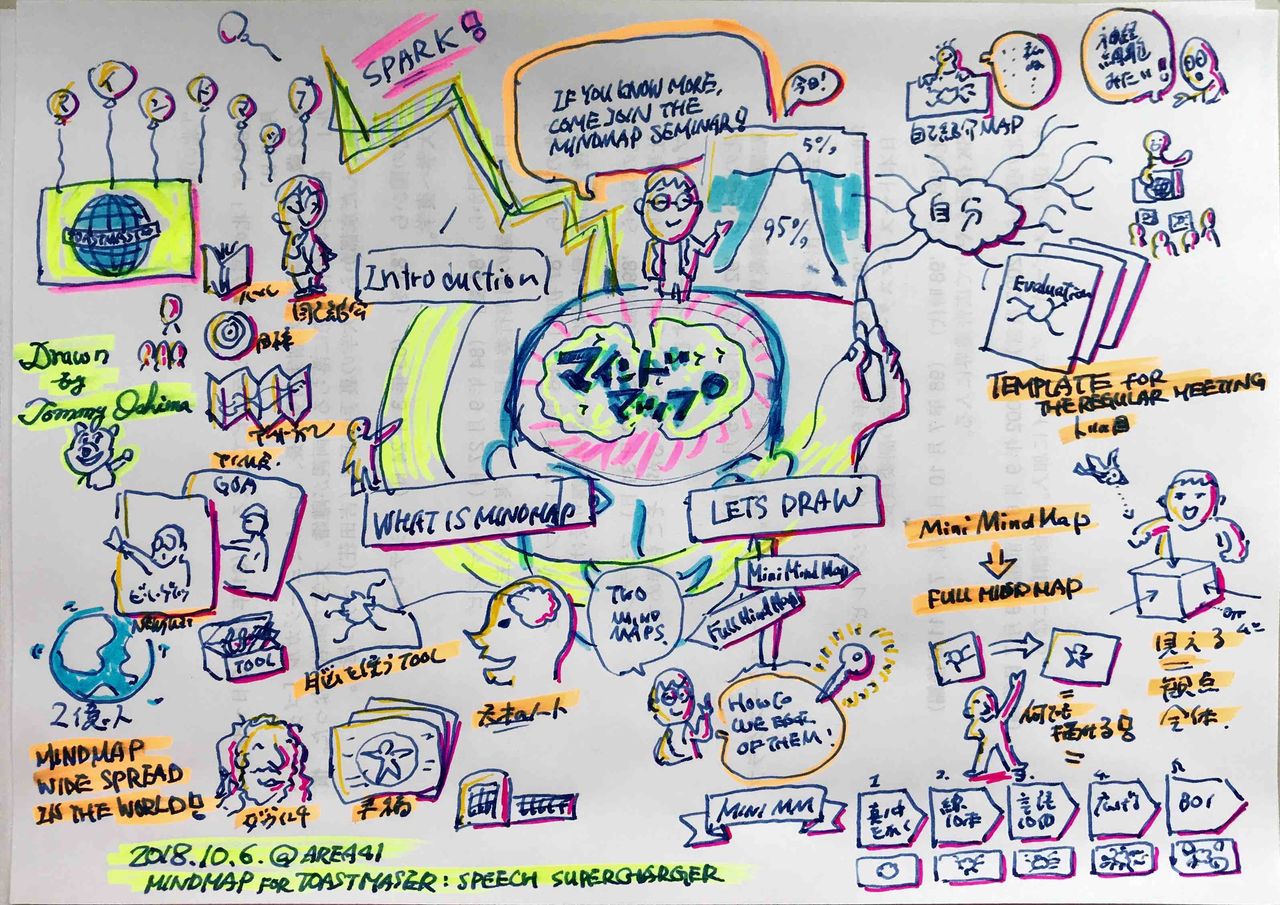 SPARK!
IF YOU KNOW MORE,
COME JOIN THE
MINDMAP SEMINAR!
今日!
5%
95%
マインドマップ
TOASTMASTERS
Introduction
自己紹介MAP
神経
細胞
みたい!!
自分
Evaluation
TEMPLATE FOR
THE REGULAR MEETING
Drawn
by
Tommy Oshima
目標
マインド
マップ
WHAT IS MINDMAP
LETS DRAW
GOA
ビル・ゲイツ
TOOL
脳を使うTOOL
TWO
MIND
MAPS
Mini Mind Map
Full Mind Map
Mini Mind Map
FULL MINDMAP
見える
=
観点
全体
何でも
描ける!
2億人
MINDMAP
WIDE SPREAD
IN THE WORLD!
ダヴィンチ
手稿
HOW TO
USE BOTH
OF THEM!
MINI MM
1.
2.
3.
4.
5.
線
10本
言語
10個
広げる
BOI
2018.10.6.@AREA41
MINDMAP FOR TOASTMASTER: SPEECH SUPERCHARGER